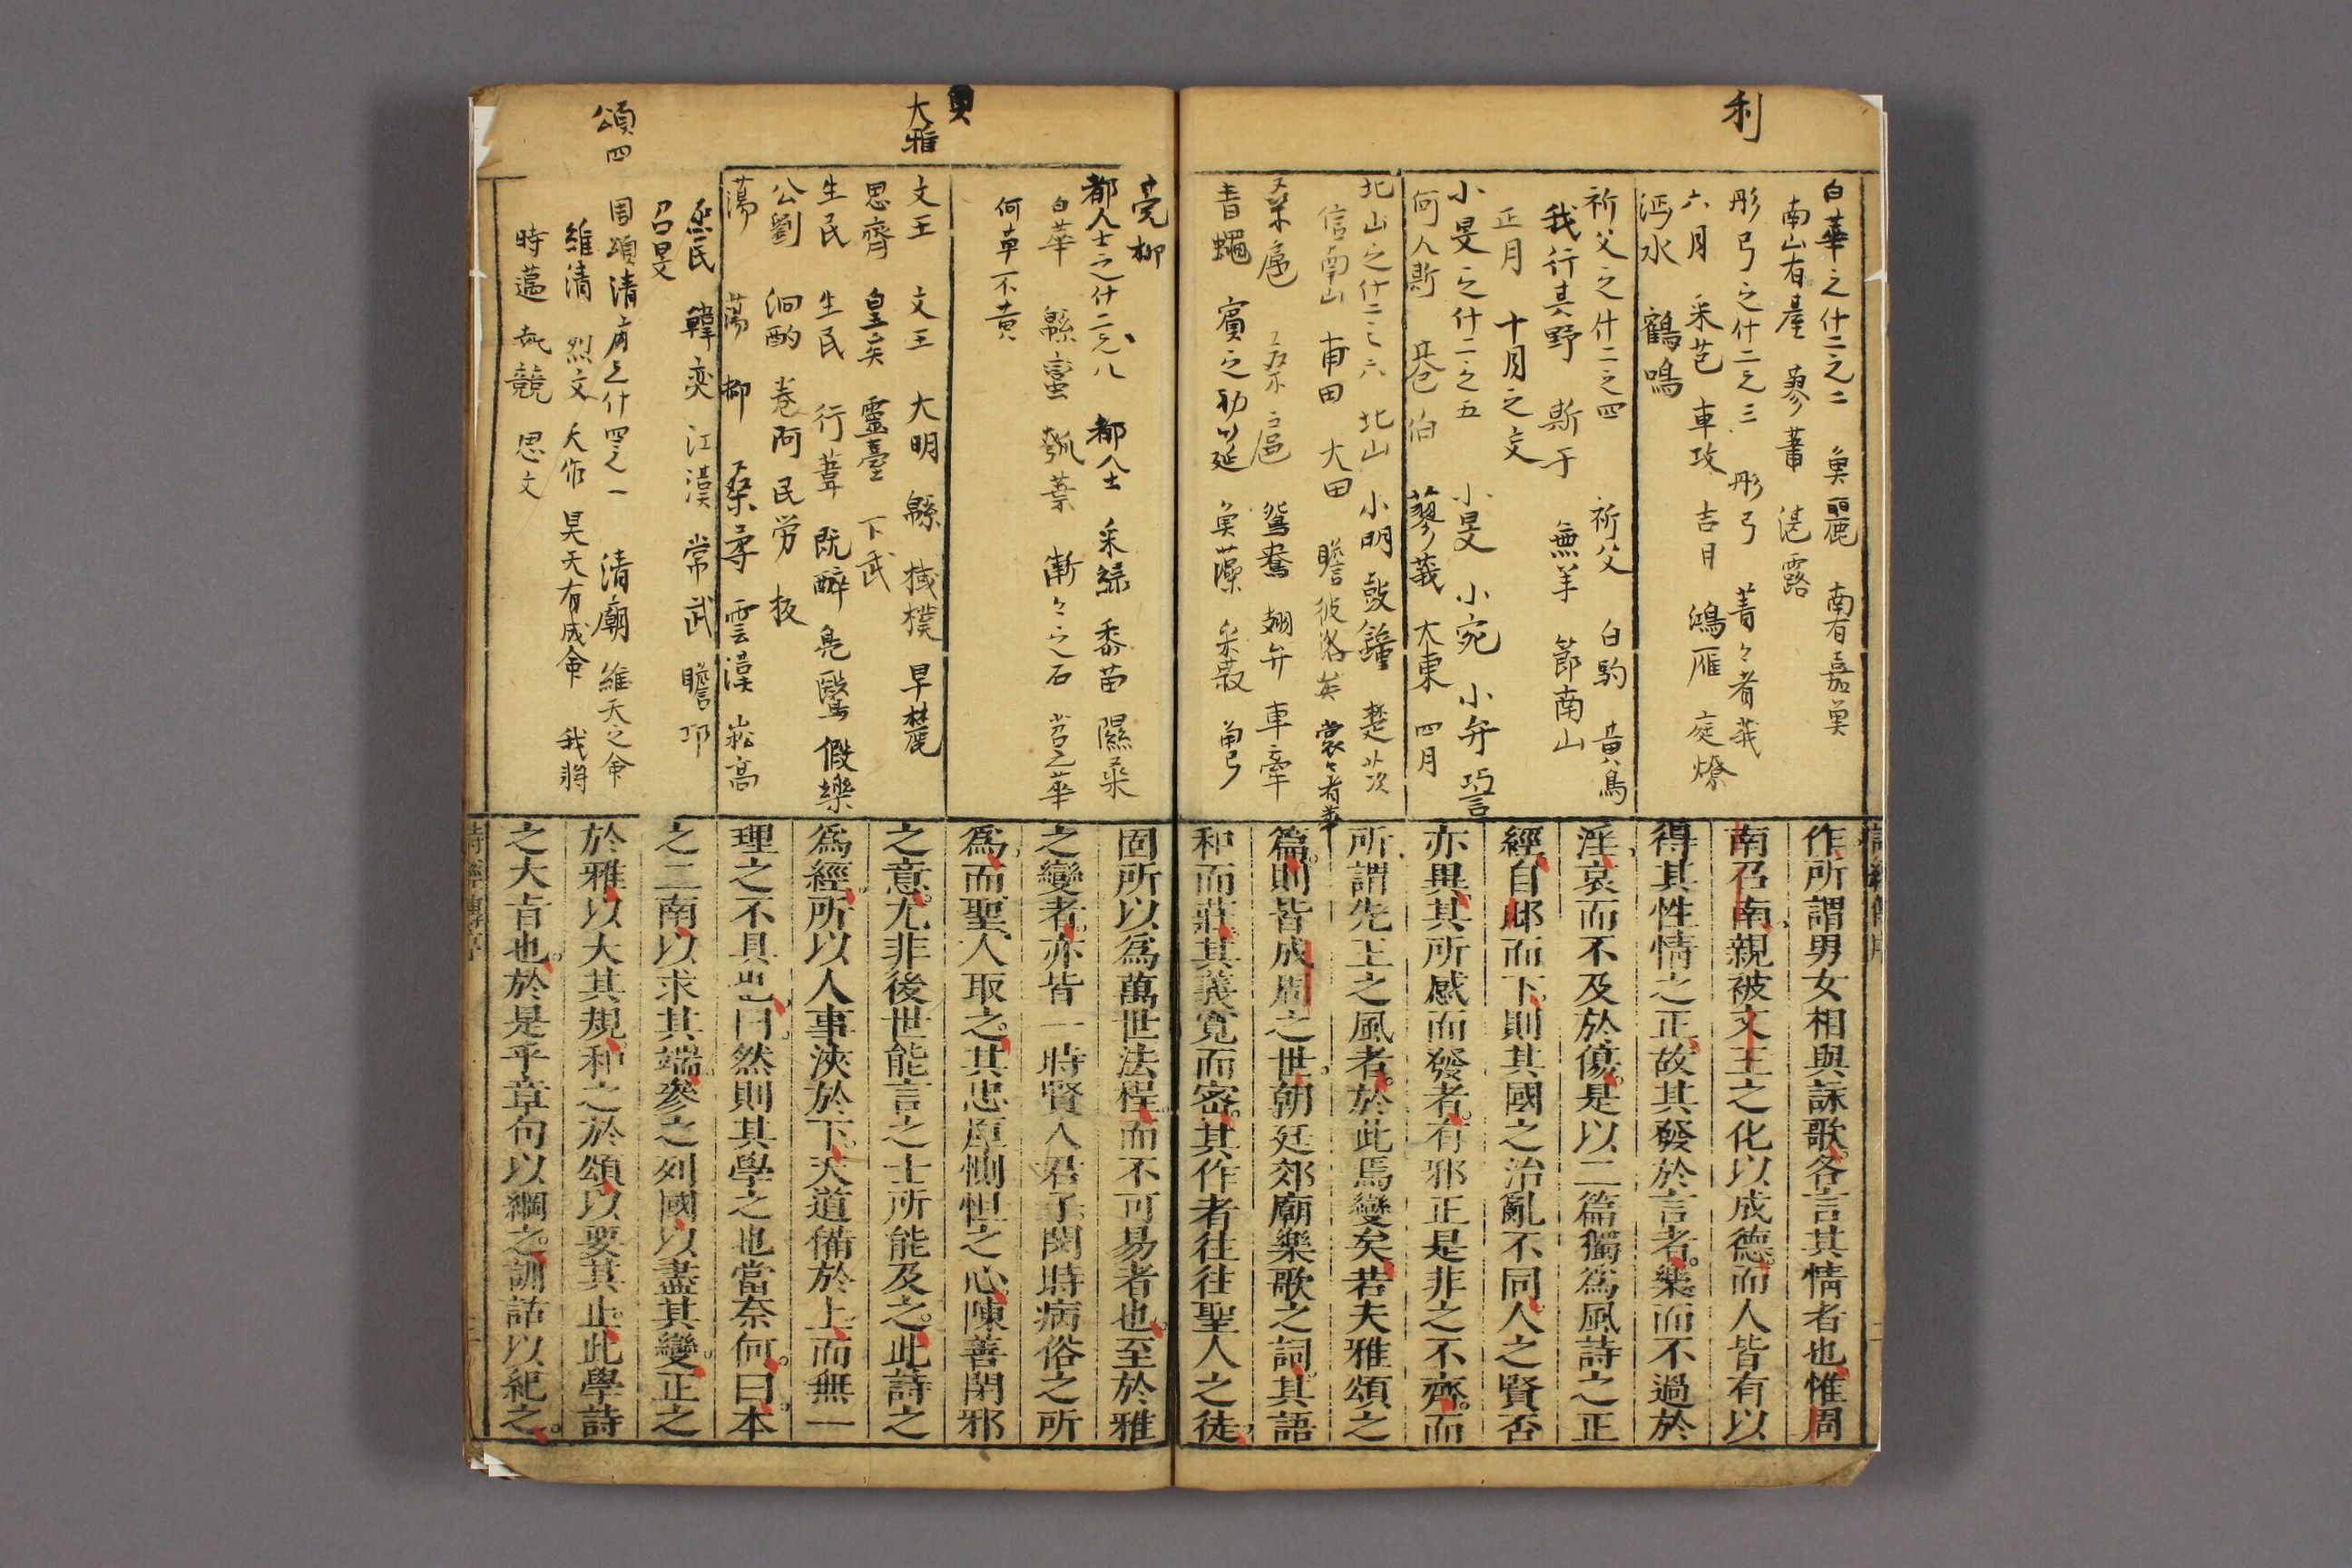 利
白華之什二之二 魚麗 南有嘉魚
南山有臺 蓼蕭 湛露
彤弓之什二之三 彤弓 菁々者莪
六月 采芑 車攻 吉日 鴻雁 庭燎
沔水 鶴鳴
祈父之什二之四 祈父 白駒 黃鳥
我行其野 斯干 無羊 節南山
正月 十月之交
小旻之什二之五 小旻 小宛 小弁 巧言
何人斯 巷伯 蓼莪 大東 四月
北山之什二之六 北山 小明 鼓鐘 楚茨
信南山 甫田 大田 瞻彼洛矣 裳々者華
桑扈 桑扈 鴛鴦 頍弁 車舝
青蠅 賓之初筵 魚藻 采菽 角弓
作所謂男女相與詠歌各言其情者也惟周
南召南親被文王之化以成德而人皆有以
得其性情之正故其發於言者樂而不過於
淫哀而不及於傷是以二篇獨爲風詩之正
經自邶而下則其國之治亂不同人之賢否
亦異其所感而發者有邪正是非之不齊而
所謂先王之風者於此焉變矣若夫雅頌之
篇則皆成周之世朝廷郊廟樂歌之詞其語
和而莊其義寬而密其作者往往聖人之徒
菀柳
都人士之什二之八 都人士 采綠 黍苗 隰桑
白華 緜蠻 瓠葉 漸々之石 苕之華
何草不黃
大雅
文王 文王 大明 緜 棫樸 旱麓
思齊 皇矣 靈臺 下武
生民 生民 行葦 既醉 鳧鷖 假樂
公劉 泂酌 卷阿 民劳 板
蕩 蕩 抑 桑柔 雲漢 崧高
烝民 韓奕 江漢 常武 瞻卬
召旻
頌四
周頌清廟之什四之一 清廟 維天之命
維清 烈文 天作 昊天有成命 我將
時邁 執競 思文
固所以爲萬世法程而不可易者也至於雅
之變者亦皆一時賢人君子閔時病俗之所
爲而聖人取之其忠厚惻怛之心陳善閉邪
之意尤非後世能言之士所能及之此詩之
爲經所以人事浹於下天道備於上而無一
理之不具也曰然則其學之也當奈何曰本
之二南以求其端參之列國以盡其變正之
於雅以大其規和之於頌以要其止此學詩
之大旨也於是乎章句以綱之訓詁以紀之
詩經傳序